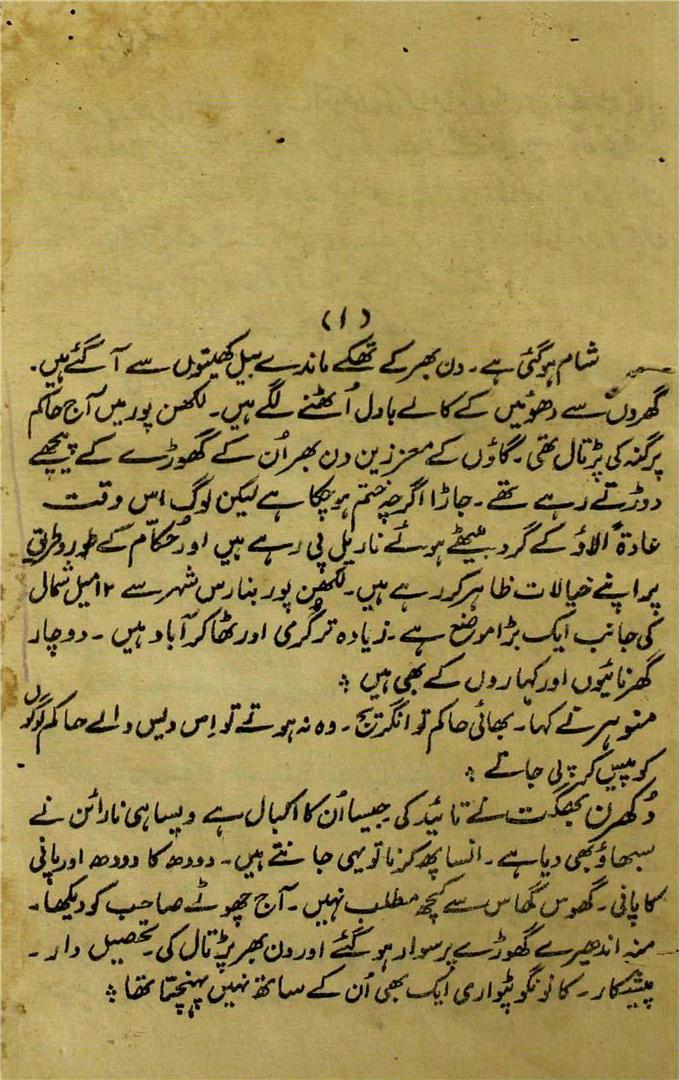 (۱)
شام ہوگئی ہے۔ دن بھر کے تھکے ماندے بیل کھیتوں سے آ گئے ہیں۔
گھروں سے دھوئیں کے کالے بادل اُٹھنے لگے ہیں۔ لکھن پور میں آج حاکم
پرگنہ کی پڑتال تھی۔ گاؤں کے معززین دن بھر اُن کے گھوڑے کے پیچھے
دوڑتے رہے تھے۔ جاڑا اگرچہ ختم ہوچکا ہے لیکن لوگ اس وقت
عادۃً الاؤ کے گرد بیٹھے ہوئے ناریل پی رہے ہیں اور حُکّام کے طور و طریق
پر اپنے خیالات ظاہر کر رہے ہیں۔ لکھن پور بنارس شہر سے ۱۲ میل شمال
کی جانب ایک بڑا موضع ہے۔ زیادہ تر کُرمی اور ٹھاکر آباد ہیں۔ دوچار
گھر نائیوں اور کہاروں کے بھی ہیں ؞
منوہر نے کہا۔ بھائی حاکم تو انگریج۔ وہ نہ ہوتے تو اِس دیس والے حاکم لوگوں
کو پیس کر پی جاتے ؞
دُکھرن بھگت نے تائید کی۔ جیسا اُن کا اکبال ہے ویسا ہی نارائن نے
سبھاؤ بھی دیا ہے۔ انسا پھ کرنا تو یہی جانتے ہیں۔ دودھ کا دودھ اور پانی
کا پانی۔ گھوس گھاس سے کچھ مطلب نہیں۔ آج چھوٹے صاحب کو دیکھا۔
منہ اندھیرے گھوڑے پر سوار ہو گئے اور دن بھر پڑتال کی۔ تحصیل دار۔
پیشکار۔ کانونگو پٹواری ایک بھی اُن کے ساتھ نہیں پہنچتا تھا ؞